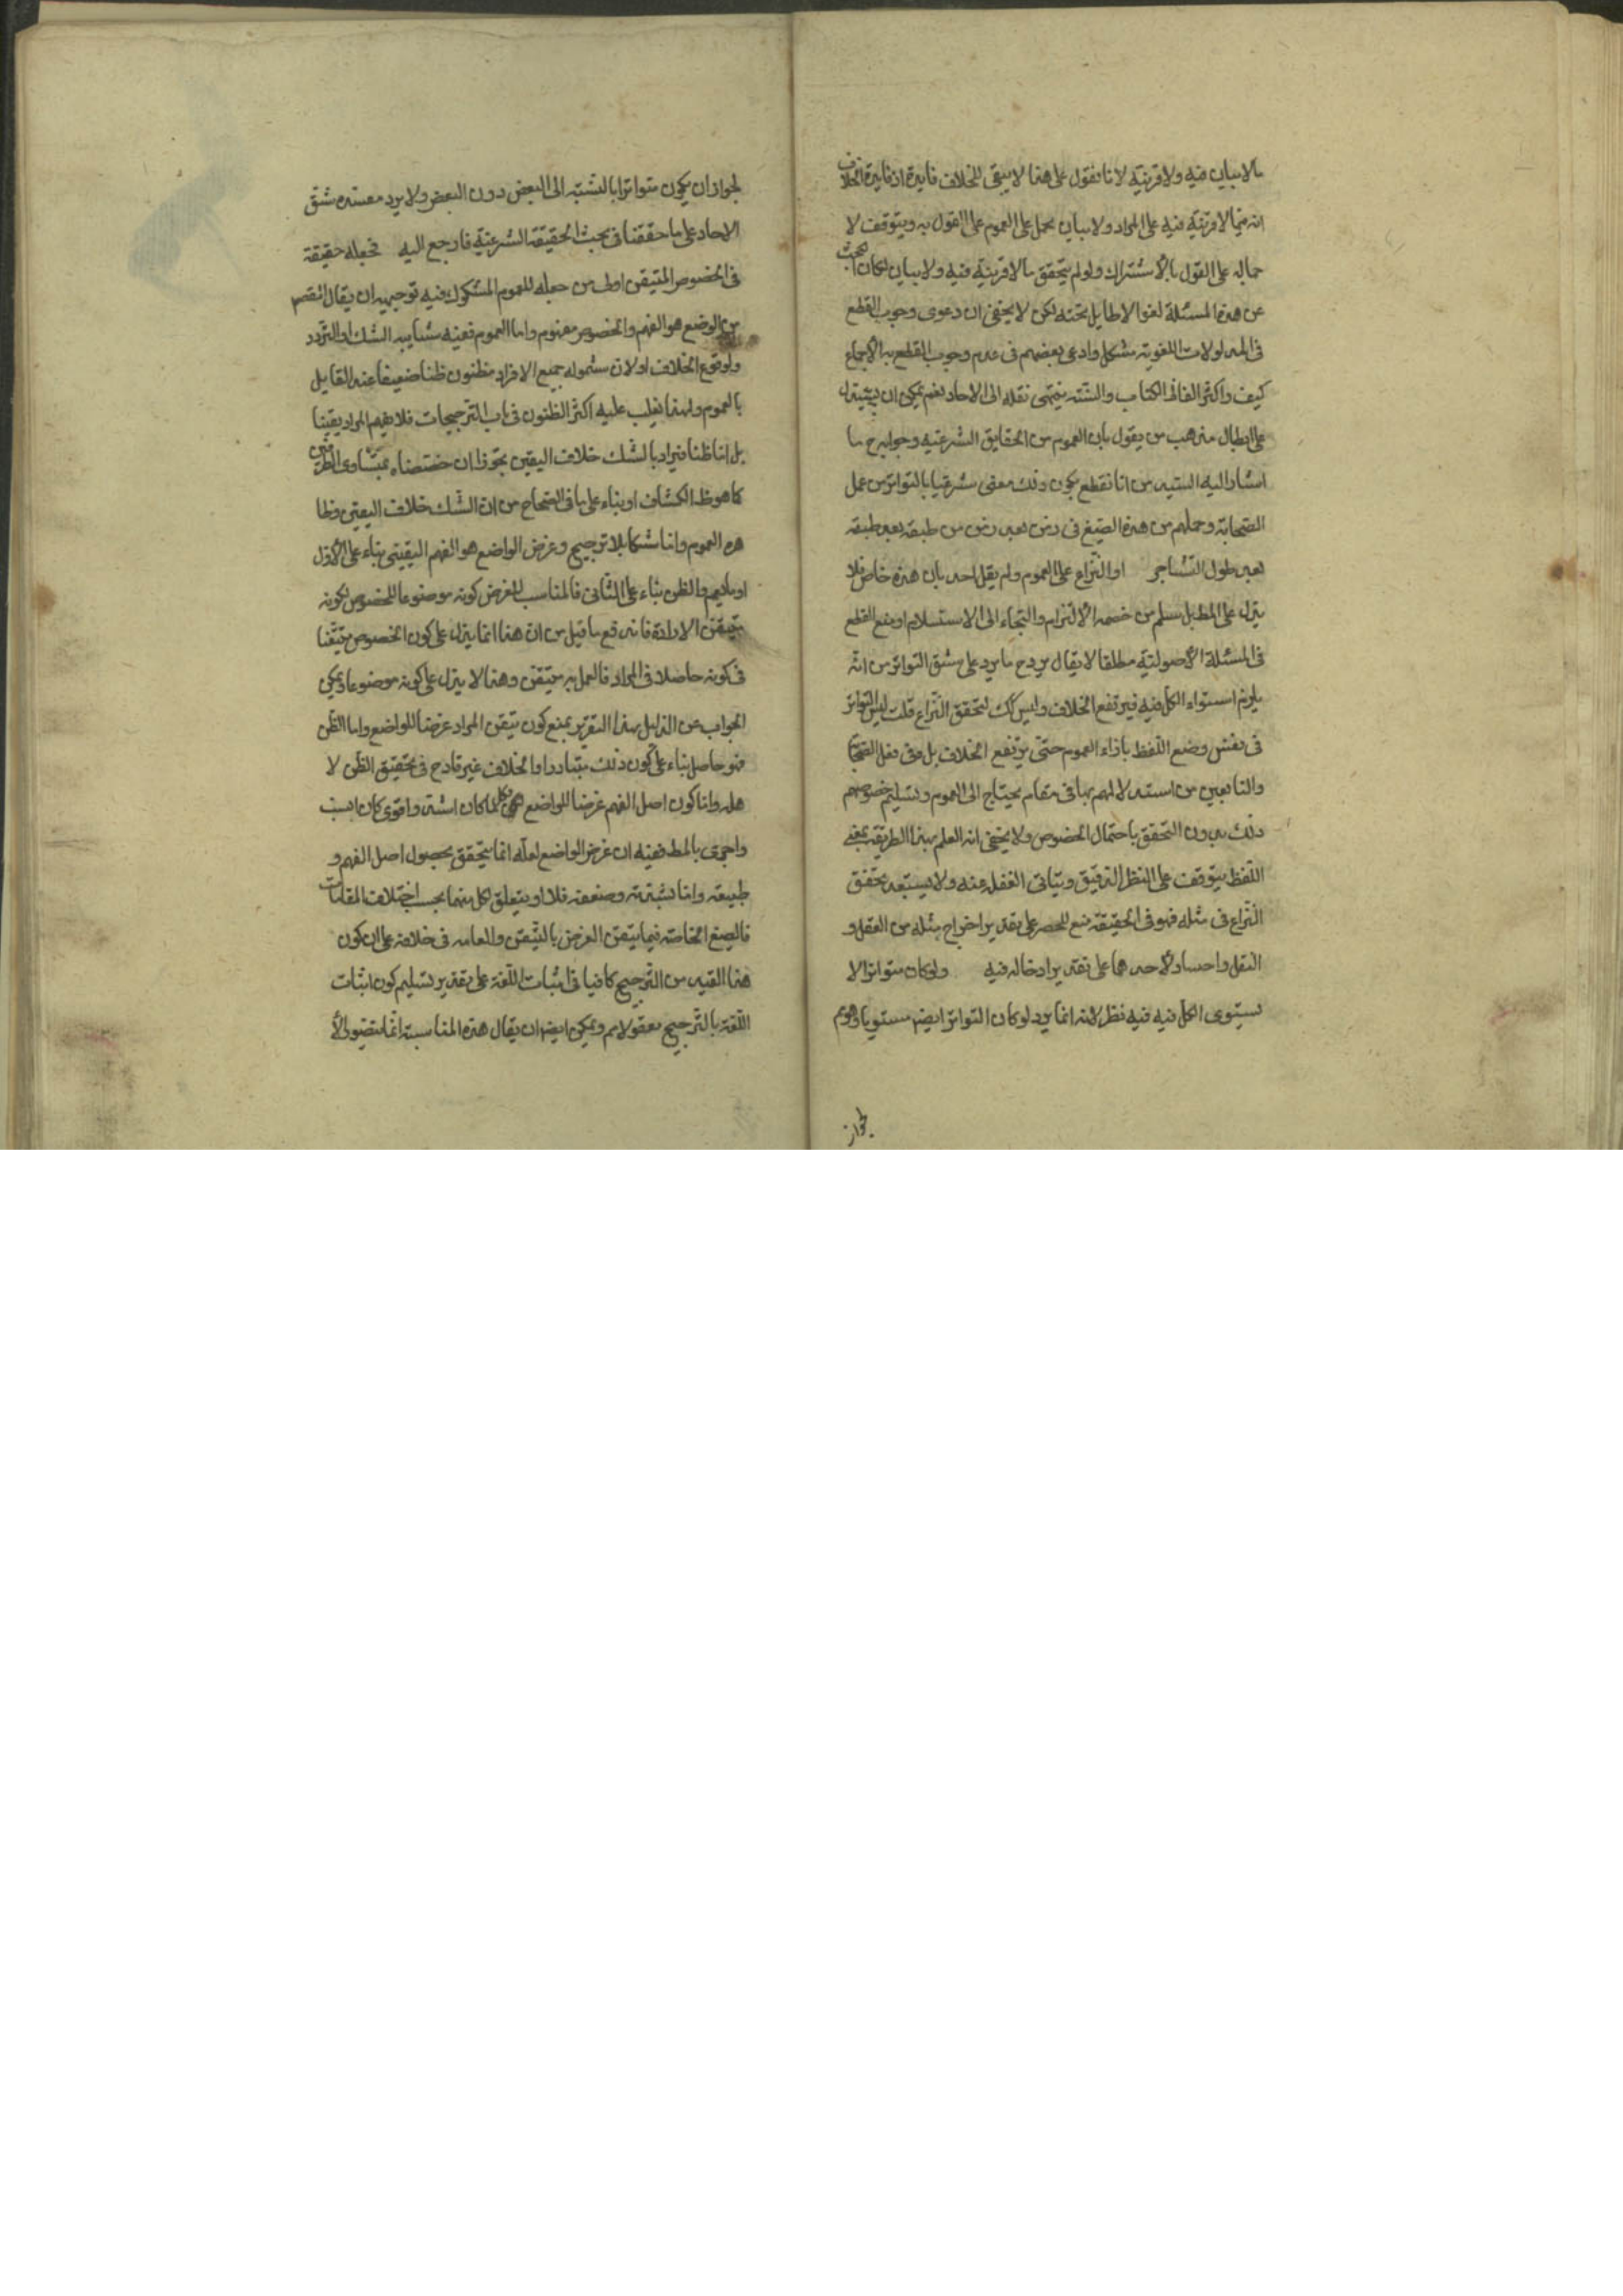 مالابيان فيه ولا قرينة لانا نقول على هذا لا يبقى للخلاف فايدة اذ فايدة الخلاف
انه فيما لا قرينة فيه على المراد ولا بيان يحمل على العموم على القول به ويتوقف لا
حماله على القول بالاشتراك ولو لم يتحقق مالا قرينة فيه ولا بيان لكان البحث
عن هذه المسئلة لغوا لا طايل تحته لكن لا يخفى ان دعوى وجوب القطع
فى المدلولات اللغوية مشكل وادعى بعضهم فى عدم وجوب القطع به الاجماع
كيف واكثر الفاظ الكتاب والسنة ينتهى نقله الى الاحاد نعم يمكن ان
على ابطال مذهب من يقول بان العموم من الحقايق الشرعية وجوابه ح ما
اشار اليه السيد من انا نقطع بكون ذلك معنى شرعيا بالتواتر من عمل
الصحابة وحملهم من هذه الصيغ فى زمن بعد زمن من طبقة بعد طبقة
بعد طول التشاجر او النزاع على العموم ولم يقل احد بان هذه خاص فلا
يدل على المط بل سلم من خصمه الالتزام والتجاء الى الاستسلام او منع القطع
فى المسئلة الاصولية مطلقا لا يقال يرد ح ما يرد على شق التواتر من انه
يلزم استواء الكل فيه فيرتفع الخلاف وليس كك لتحقق النزاع قلت ليس التواتر
فى نفس وضع اللفظ بازاء العموم حتى يرتفع الخلاف بل فى نقل الصحابة
والتابعين من استدلالهم بها فى مقام يحتاج الى العموم وتسليم خصومهم
ذلك بدون التحقق باحتمال الخصوص ولا يخفى ان العلم بهذا الطريق بمعنى
اللفظ يتوقف على النظر الدقيق ويتاتى الغفلة عنه ولا يستبعد تحقق
النزاع فى مثله فهو فى الحقيقة منع للحصر على تقدير اخراج مثله من العقل و
النقل واحساد لاحدهما على تقدير ادخاله فيه ولو كان متواترا لا
يستوى الكل فيه فيه نظر لانه انما يرد لو كان التواتر ايضا مستويا وهو م
لجواز
لجواز ان يكون متواترا بالنسبة الى البعض دون البعض ولا يرد مفسده شق
الاحاد على ما حققنا فى بحث الحقيقة الشرعية فارجع اليه فجعله حقيقة
فى الخصوص المتيقن اولى من جعله للعموم المشكوك فيه توجيهه ان يقال المقصد
من الوضع هو الفهم والخصوص مفهوم واما العموم ففيه شايبه الشك او التردد
ولوقوع الخلاف او لان شموله جميع الافراد مظنون ظنا ضعيفا عند القايل
بالعموم ولهذا يغلب عليه اكثر الظنون فى باب الترجيحات فلا يفهم المراد يقينا
بل اما ظنا فيراد بالشك خلاف اليقين تجوزا ان خصصناه بمتساوى الطرفين
كما هو ظ الكشاف او بناء على ما فى الصحاح من ان الشك خلاف اليقين وظا
هره العموم واما شكا بلا ترجيح وغرض الواضع هو الفهم اليقينى بناء على الاول
او ما يعم والظن بناء على الثانى فالمناسب للغرض كونه موضوعا للخصوص لكونه
متيقن الارادة فاندفع ما قيل من ان هذا انما يدل على كون الخصوص متيقنا
فى كونه حاصلا فى المراد فالعمل به متيقن وهذا لا يدل على كونه موضوعا له ويمكن
الجواب عن الدليل بهذا التقرير بمنع كون تيقن المراد غرضا للواضع واما الظن
فهو حاصل بناء على كون ذلك متبادرا والخلاف غير قادح فى تحقيق الظن لا
هله واما كون اصل الفهم غرضا للواضع فكلما كان اشد واقوى كان انسب
واحرى بالمط ففيه ان غرض الواضع لعله انما يتحقق بحصول اصل الفهم و
طبيعته واما شدته وضعفه فلا او يتعلق لكل منهما بحسب اختلاف المقامات
فالصيغ الخاصة فيما يتعلق الغرض بالتيقن والعامه فى خلافه على ان كون
هذا القدر من الترجيح كافيا فى اثبات اللغة على تقدير تسليم كون اثبات
اللغة بالترجيح معقولا م ويمكن ايضا ان يقال هذه المناسبة انما تقتضى